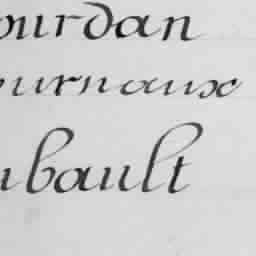 ourdan
ournaux
ubault